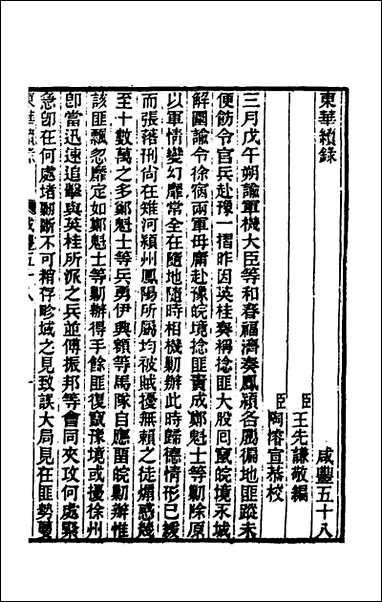 東華續錄
咸豐五十八
臣王先謙敬編
臣陶濬宣恭校
三月戊午朔諭軍機大臣等和春福濟奏鳳潁各屬徧地匪蹤未
便飭令官兵赴豫一摺昨因英桂奏稱捻匪大股回竄皖境永城
解圍諭令徐宿兩軍毋庸赴豫皖境捻匪責成鄭魁士等勦除原
以軍情變幻靡常全在隨地隨時相機勦辦此時歸德情形已緩
而張落刑尚在雉河潁州鳳陽所屬均被賊擾無賴之徒煽惑幾
至十數萬之多鄭魁士等兵勇伊興額等馬隊自應留皖勦辦惟
該匪飄忽靡定如鄭魁士等勦辦得手餘匪復竄豫境或擾徐州
卽當迅速追擊與英桂所派之兵並傅振邦等會同夾攻何處緊
急卽在何處堵勦斷不可稍存畛域之見致誤大局見在匪勢蔓